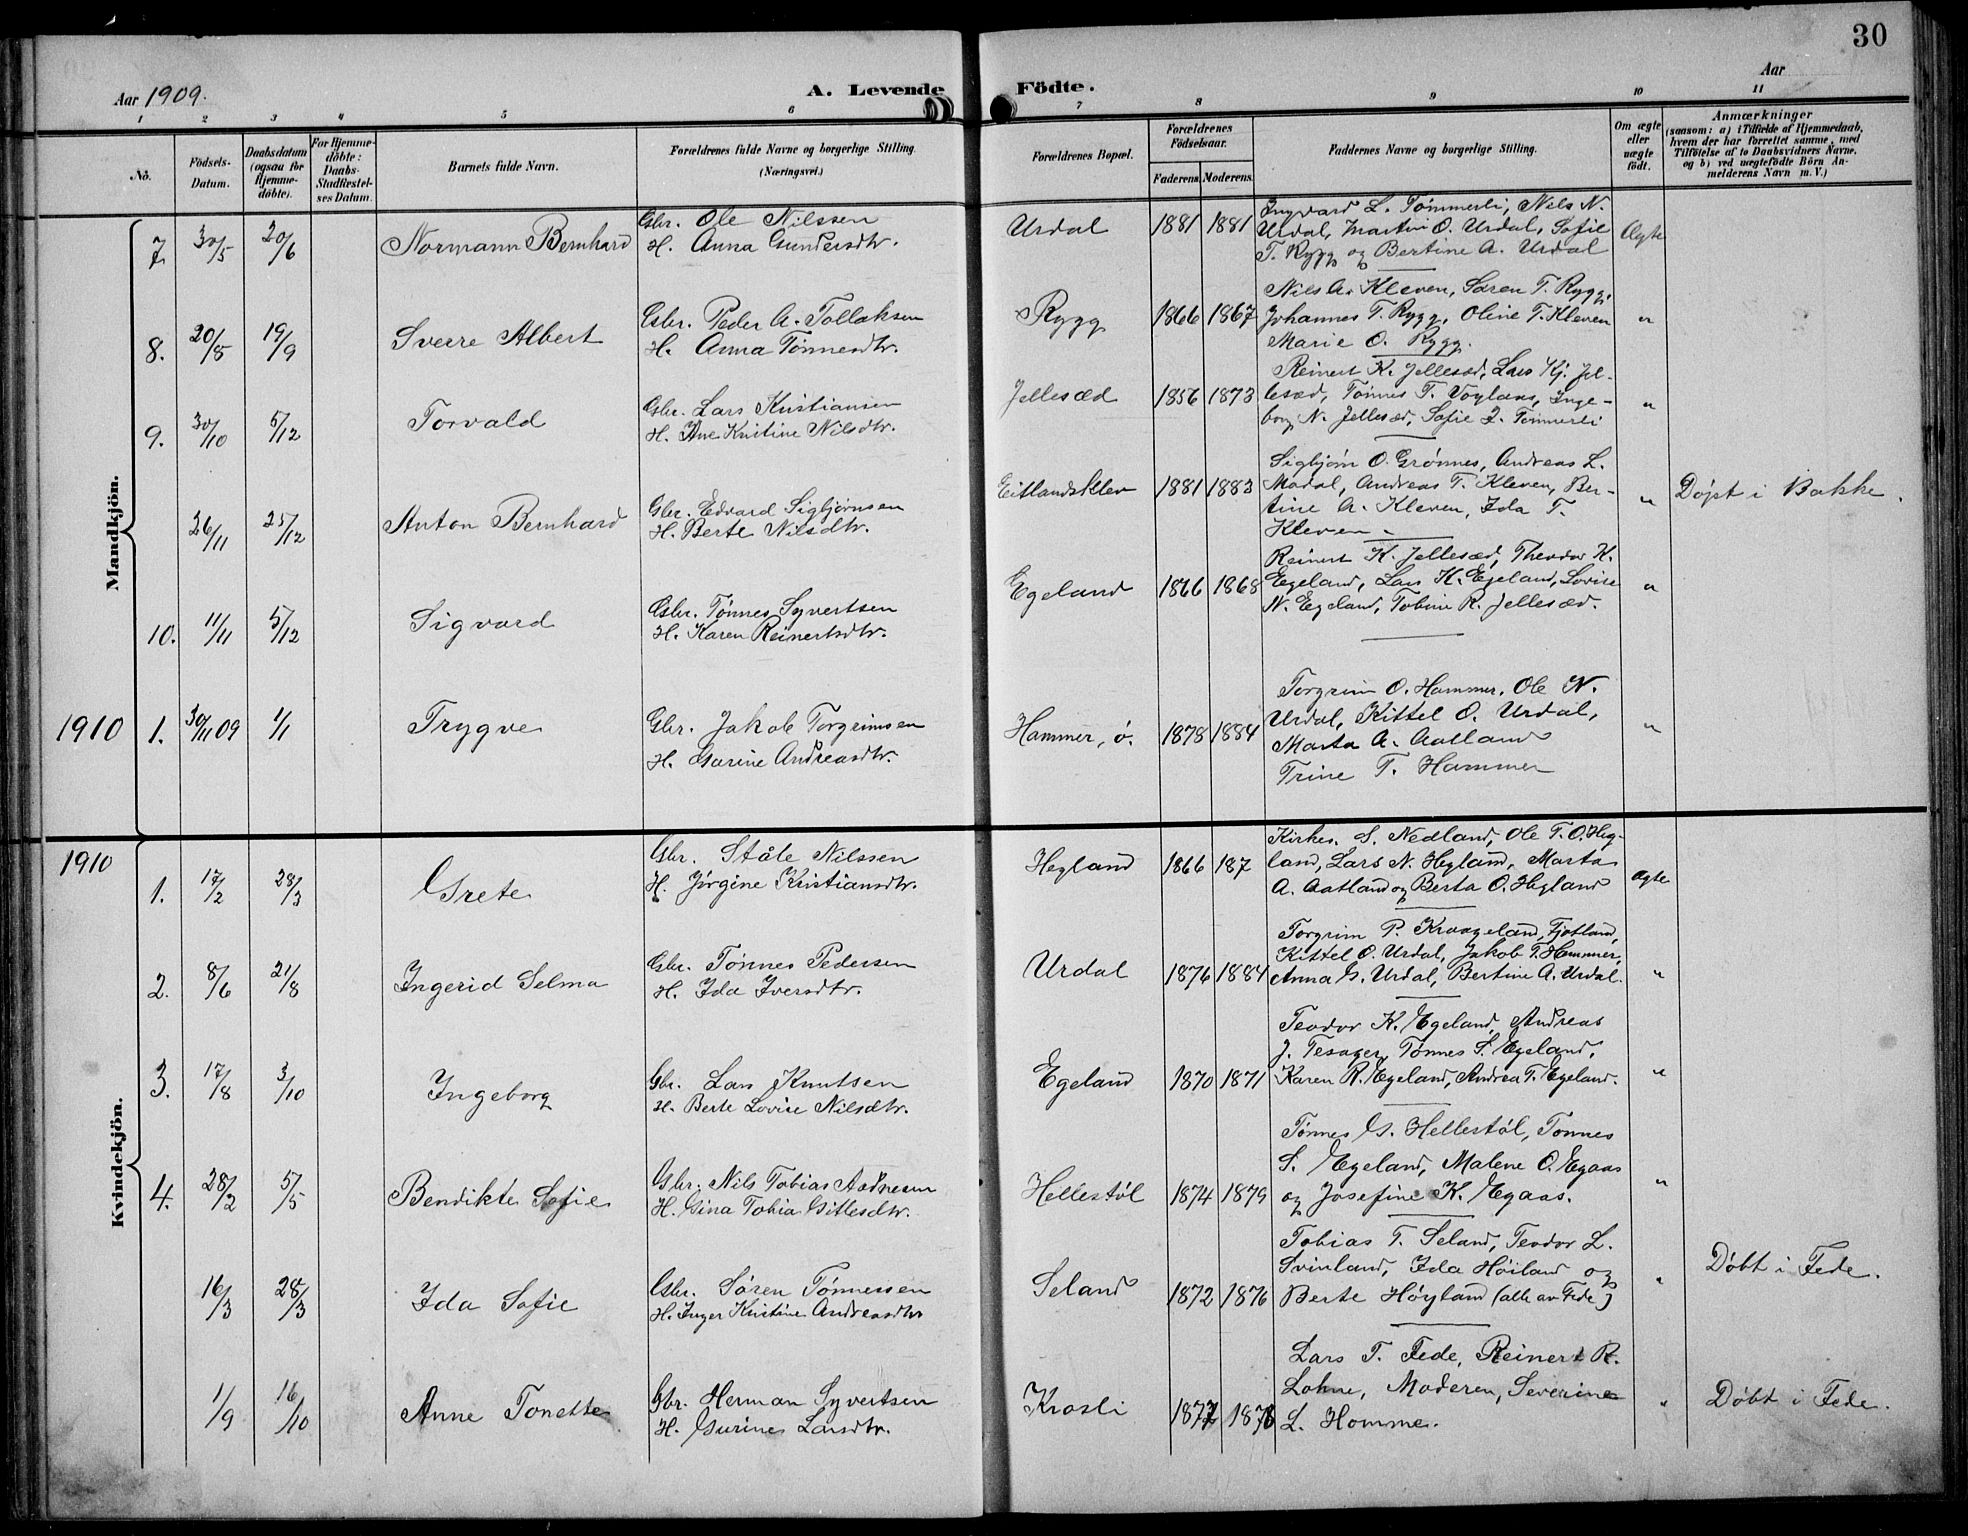 30
Aar 1909.
A. Levende Födte.
Aar
1 2 3 4 5 6 7 8 9 10 11
No.
Födsels-Datum.
Daabsdatum (ogsaa for Hjemme-döbte).
For Hjemme-döbte: Daabs-Stadfæstel-ses Datum.
Barnets fulde Navn.
Forældrenes fulde Navne og borgerlige Stilling. (Næringsvei.)
Forældrenes Bopæl.
Forældrenes Födselsaar.
Faderens. Moderens.
Faddernes Navne og borgerlige Stilling.
Om ægte eller uægte födt.
Anmærkninger
(saasom: a) i Tilfælde af Hjemmedaab, hvem der har forrettet samme, med Tilföielse af to Daabsvidners Navne, og b) ved uægtefödte Börn An-melderens Navn m. V.)
Mandkjön.
7. 30/5 20/6 Normann Bernhard
Gbr. Ole Nilssen
H. Anna Gundersdtr.
Urdal 1881 1881
Ingvard L. Tömmerli, Nils N.
Urdal, Martin O. Urdal, Sofie
T. Rygg og Bertine A. Urdal
Ægte
8. 20/8 19/9 Sverre Albert
Gbr. Peder A. Tollaksen
H. Anna Tønnesdtr.
Rygg 1866 1867
Nils A. Kleven, Søren T. Rygg,
Johannes T. Rygg, Oline T. Kleven
Marie O. Rygg.
"
9. 30/10 5/12 Torvald
Gbr. Lars Kristiansen
H. Ane Kristine Nilsdtr.
Jellesæd 1856 1873
Reinert K. Jellesæd, Lars Kj. Jel-
lesæd, Tønnes T. Voylaas, Inge-
borg N. Jellesæd, Sofie L. Tømmerli
"
26/11 25/12 Anton Bernhard
Gbr. Edvard Sigbjørnsen
H. Berte Nilsdtr.
Eitlandsklev 1881 1883
Sigbjørn O. Grønnes, Andreas L.
Modal, Andreas T. Kleven, Ber-
tine A. Kleven, Ida T.
Kleven.
" Døpt i Bakke.
10. 11/11 5/12 Sigvard
Gbr. Tønnes Syvertsen
H. Karen Reinertsdtr.
Egeland 1866 1868
Reinert K. Jellesæd, Theodor K.
Egeland, Lars K. Egeland, Lovise
N. Egeland, Tobine R. Jellesæd.
"
1910 1. 30/11 09 1/1 Trygve
Gbr. Jakob Torgrimsen
H. Gurine Andreasdtr.
Hammer, ø. 1878 1884
Torgrim O. Hammer, Ole N.
Urdal, Kittel O. Urdal,
Marta A. Aatland
Trine T. Hammer
"
1910
Kvindekjön.
1. 17/2 28/3 Grete
Gbr. Ståle Nilssen
H. Jørgine Kristiansdtr.
Hegland 1866 187
Kirkes. S. Nedland, Ole T. O. Heg-
land, Lars N. Hegland, Marta
A. Aatland og Berta O. Hegland
Ægte
2. 8/6 21/8 Ingerid Selma
Gbr. Tønnes Pedersen
H. Ida Iversdtr.
Urdal 1876 1884
Torgrim P. Kvaageland, Fjotland,
Kittel O. Urdal, Jakob T. Hammer,
Anna G. Urdal, Bertine A. Urdal.
"
3. 17/8 3/10 Ingeborg
Gbr. Lars Knutsen
H. Berte Lovise Nilsdtr.
Egeland 1870 1871
Teodor K. Egeland, Andreas
J. Tesager, Tønnes S. Egeland,
Karen R. Egeland, Andrea T. Egeland.
"
4. 28/2 5/5 Bendikte Sofie
Gbr. Nils Tobias Aadnesen
H. Gina Tobia Gitlesdtr.
Hellestøl 1874 1879
Tønnes G. Hellestøl, Tønnes
S. Egeland, Malene O. Egaas
og Josefine K. Egaas.
"
16/3 28/3 Ida Sofie
Gbr. Søren Tønnessen
H. Inger Kristine Andreasdtr
Seland 1872 1876
Tobias T. Seland, Teodor L.
Svinland, Ida Høiland og
Berte Høyland (alle av Fede)
" Døbt i Fede.
1/9 16/10 Anne Tonette
Gbr. Herman Syvertsen
H. Gurine Larsdtr.
Krosli 1877 1878
Lars T. Fede, Reinert R.
Lohne, Moderen, Severine
L. Homme.
" Døbt i Fede.